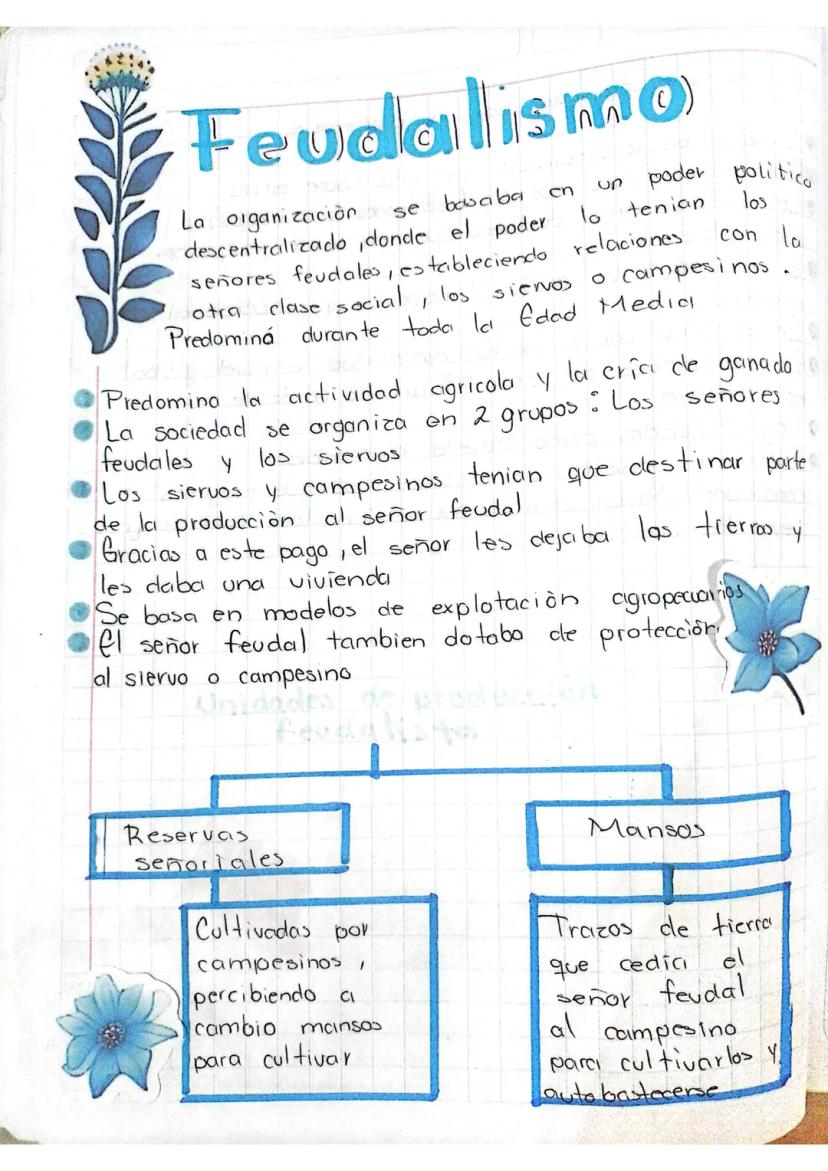 Feudalismo
La organizaciòn se basaba en un poder politico
descentralizado, donde el poder lo tenian los
señores feudales, estableciendo relaciones con la
otra clase social, los siervos o campesinos.
Predominá durante toda la Edad Media
Predomino la actividad agricola y la cría de ganado
La sociedad se organiza en 2 grupos: Los señores
feudales y los siervos
Los siervos y campesinos tenian que destinar parte
de la producciòn al señor feudal
Gracias a este pago, el señor les dejaba las tierras y
les daba una vivienda
Se basa en modelos de explotaciòn agropecuarios
El señor feudal tambien dotaba de protecciòn
al siervo o campesino
Unidades de producción
feudalista
Reservas
señoriales
Mansos
Cultivadas por
campesinos,
percibiendo a
cambio mansos
para cultivar
Trazos de tierra
que cedia el
señor feudal
al campesino
para cultivarlos y
autobastecerse